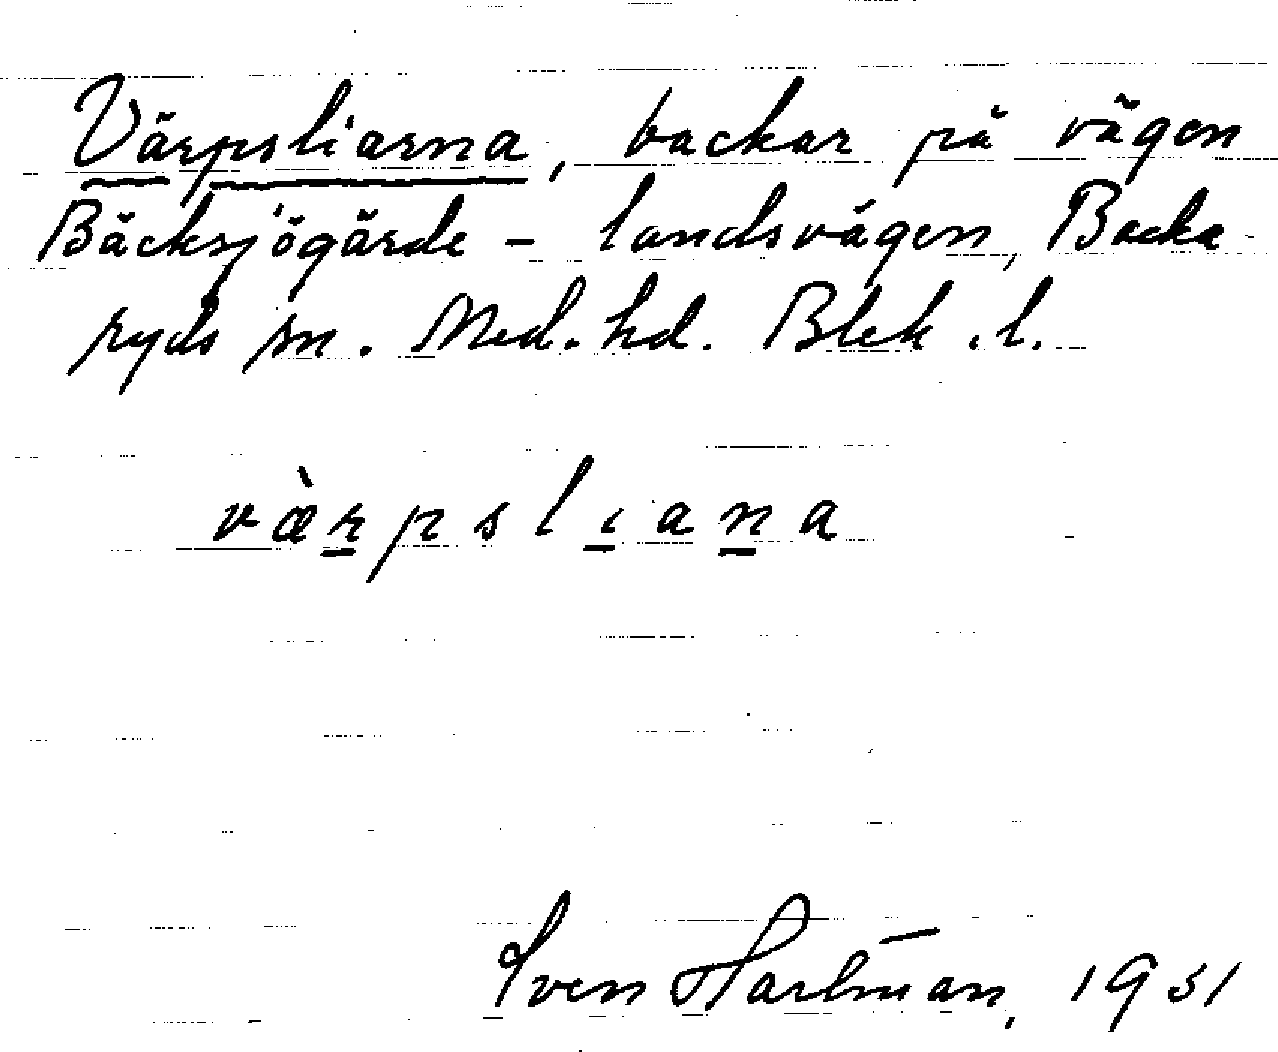 Värpsliarna, backar på vägen
Bäcksjögärde - landsvägen, Backa-
ryds sn. Med. hd. Blek. l.
væ̀rpslıana
Sven Hartman, 1931